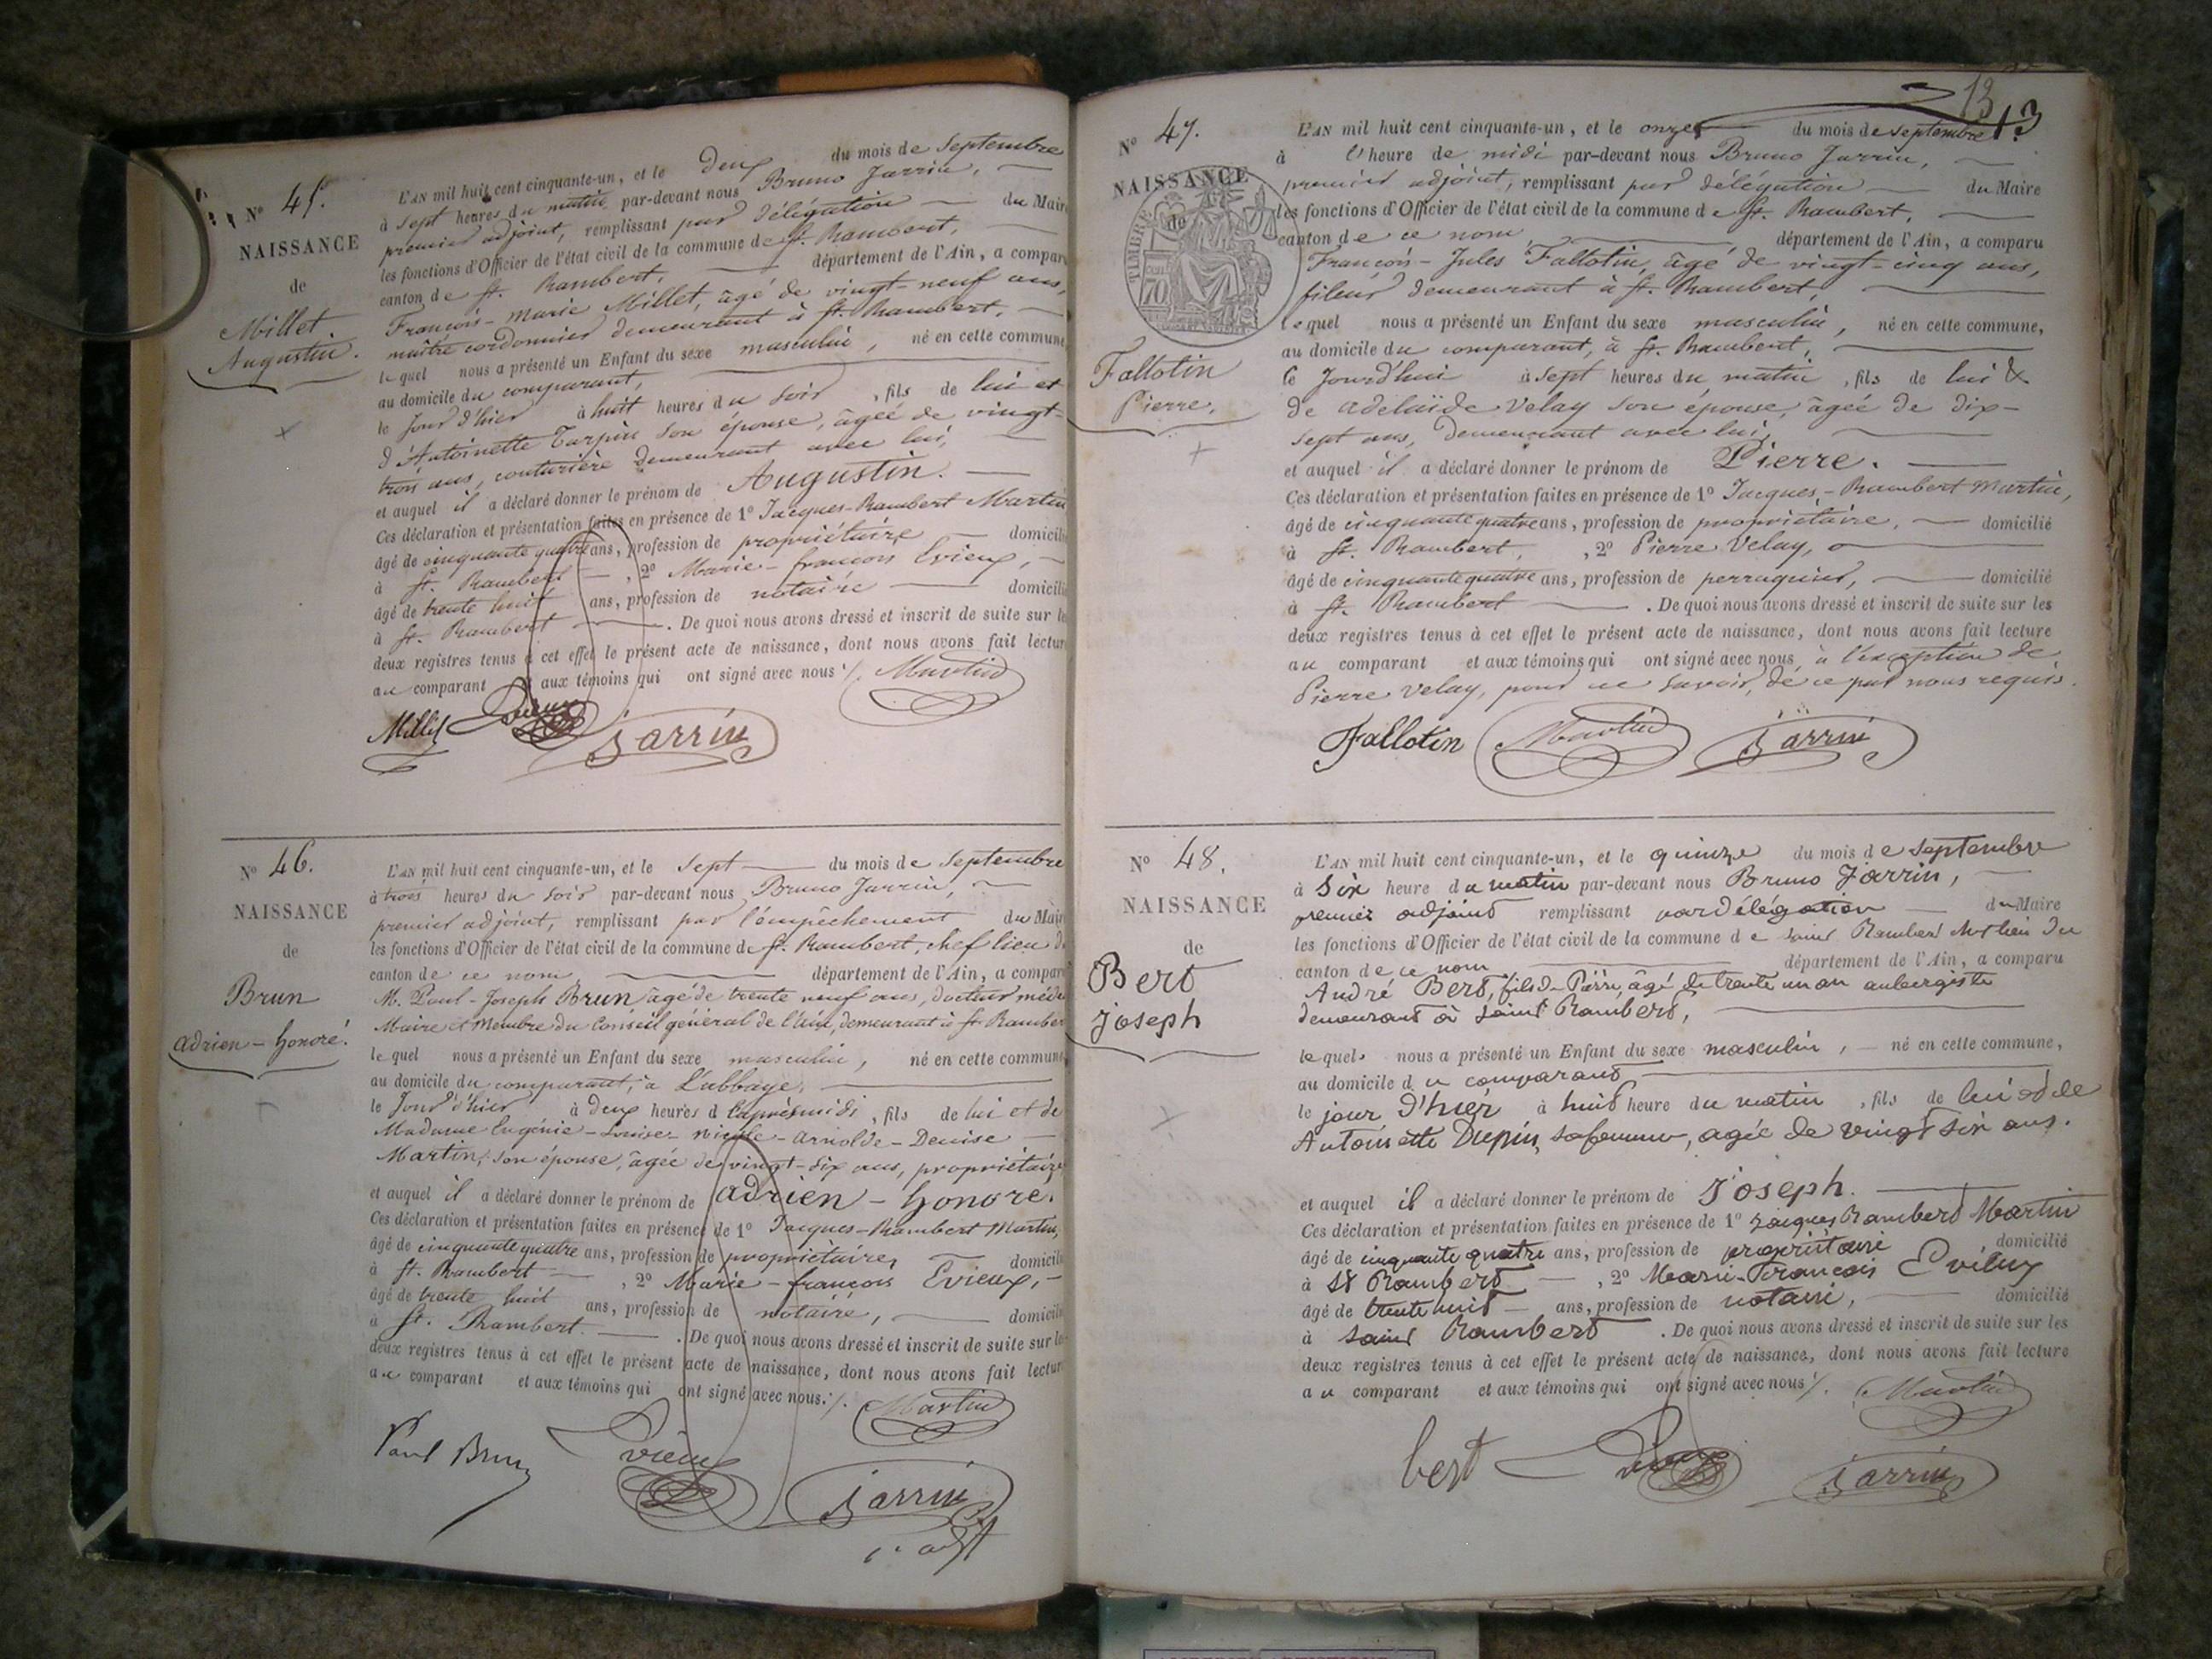 N° 45.
NAISSANCE
de
Millet
Augustin.
L'AN mil huit cent cinquante-un, et le deux du mois de Septembre
à sept heures du matin par-devant nous Bruno Jarrin,
premier adjoint, remplissant par délégation du Maire
les fonctions d'Officier de l'état civil de la commune de St. Rambert,
canton de St. Rambert, département de l'Ain, a comparu
François-Marie Millet, âgé de vingt-neuf ans,
maître cordonnier demeurant à St. Rambert,
lequel nous a présenté un Enfant du sexe masculin, né en cette commune
au domicile du comparant,
le Jour d'hier à huit heures du soir, fils de lui et
d'Antoinette Tarpin son épouse, âgée de vingt-
trois ans, couturière demeurant avec lui,
et auquel il a déclaré donner le prénom de Augustin.
Ces déclaration et présentation faites en présence de 1° Jacques-Rambert Martin
âgé de cinquante quatre ans, profession de propriétaire domicilié
à St. Rambert, 2° Marie-françois Evieux,
âgé de trente huit ans, profession de notaire domicilié
à St. Rambert. De quoi nous avons dressé et inscrit de suite sur les
deux registres tenus à cet effet le présent acte de naissance, dont nous avons fait lecture
au comparant et aux témoins qui ont signé avec nous ./. Martin
Millet Evieux Jarrin
N° 46.
NAISSANCE
de
Brun
adrien-honoré.
L'AN mil huit cent cinquante-un, et le sept du mois de Septembre
à trois heures du soir par-devant nous Bruno Jarrin,
premier adjoint, remplissant par l'empêchement du Maire
les fonctions d'Officier de l'état civil de la commune de St. Rambert, chef lieu de
canton de ce nom, département de l'Ain, a comparu
M. Paul-Joseph Brun âgé de trente neuf ans, docteur médecin
Maire et Membre du Conseil général de l'ain, demeurant à St. Rambert
lequel nous a présenté un Enfant du sexe masculin, né en cette commune
au domicile du comparant, à L'abbaye,
le Jour d'hier à deux heures d l'après midi, fils de lui et de
Madame Eugénie-Louise-Nicole-Arnolde-Denise
Martin, son épouse, âgée de vingt-six ans, propriétaire
et auquel il a déclaré donner le prénom de adrien-honoré.
Ces déclaration et présentation faites en présence de 1° Jacques-Rambert Martin,
âgé de cinquante quatre ans, profession de propriétaire, domicilié
à St. Rambert, 2° Marie-françois Evieux,
âgé de trente huit ans, profession de notaire, domicilié
à St. Rambert. De quoi nous avons dressé et inscrit de suite sur les
deux registres tenus à cet effet le présent acte de naissance, dont nous avons fait lecture
au comparant et aux témoins qui ont signé avec nous ./. Martin
Paul Brun Evieux Jarrin
13 13
N° 47.
NAISSANCE
de
TIMBRE
70
Fallotin
Pierre.
L'AN mil huit cent cinquante-un, et le onze du mois de septembre
à l'heure de midi par-devant nous Bruno Jarrin,
premier adjoint, remplissant par délégation du Maire
les fonctions d'Officier de l'état civil de la commune de St. Rambert,
canton de ce nom, département de l'Ain, a comparu
François-Jules Fallotin, âgé de vingt-cinq ans,
fileur demeurant à St. Rambert,
lequel nous a présenté un Enfant du sexe masculin, né en cette commune,
au domicile du comparant, à St. Rambert,
le Jourd'hui à sept heures du matin, fils de lui &
de adelaïde Velay son épouse, âgée de dix-
sept ans, demeurant avec lui,
et auquel il a déclaré donner le prénom de Pierre.
Ces déclaration et présentation faites en présence de 1° Jacques-Rambert Martin,
âgé de cinquante quatre ans, profession de propriétaire, domicilié
à St. Rambert, 2° Pierre Velay,
âgé de cinquante quatre ans, profession de perruquier, domicilié
à St. Rambert. De quoi nous avons dressé et inscrit de suite sur les
deux registres tenus à cet effet le présent acte de naissance, dont nous avons fait lecture
au comparant et aux témoins qui ont signé avec nous, à l'exception de
Pierre Velay, pour ne savoir, de ce par nous requis.
Fallotin Martin Jarrin
N° 48.
NAISSANCE
de
Bert
Joseph
L'AN mil huit cent cinquante-un, et le quinze du mois de septembre
à six heure du matin par-devant nous Bruno Jarrin,
premier adjoint remplissant par délégation du Maire
les fonctions d'Officier de l'état civil de la commune de saint Rambert chef lieu du
canton de ce nom département de l'Ain, a comparu
André Bert, fils de Pierre, âgé de trente un an aubergiste
demeurant à saint Rambert,
lequel nous a présenté un Enfant du sexe masculin, né en cette commune,
au domicile du comparant,
le jour d'hier à huit heure du matin, fils de lui et de
Antoinette Dupin, sa femme, agée de vingt six ans.
et auquel il a déclaré donner le prénom de Joseph.
Ces déclaration et présentation faites en présence de 1° Jacques Rambert Martin
âgé de cinquante quatre ans, profession de propriétaire domicilié
à St Rambert, 2° Marie-François Evieux
âgé de trente huit ans, profession de notaire, domicilié
à saint Rambert. De quoi nous avons dressé et inscrit de suite sur les
deux registres tenus à cet effet le présent acte de naissance, dont nous avons fait lecture
au comparant et aux témoins qui ont signé avec nous ./. Martin
bert Evieux Jarrin